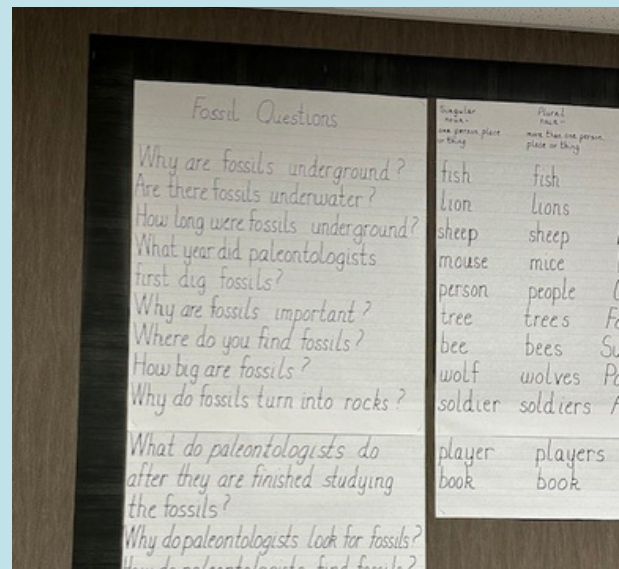 Fossil Questions
Why are fossils underground?
Are there fossils underwater?
How long were fossils underground?
What year did paleontologists
first dig fossils?
Why are fossils important?
Where do you find fossils?
How big are fossils?
Why do fossils turn into rocks?
What do paleontologists do
after they are finished studying
the fossils?
Why do paleontologists look for fossils?
How do paleontologists find fossils?
Singular Plural
noun- noun-
one person, place more than one person,
or thing place or thing
fish fish
lion lions
sheep sheep
mouse mice
person people
tree trees
bee bees
wolf wolves
soldier soldiers
player players
book book